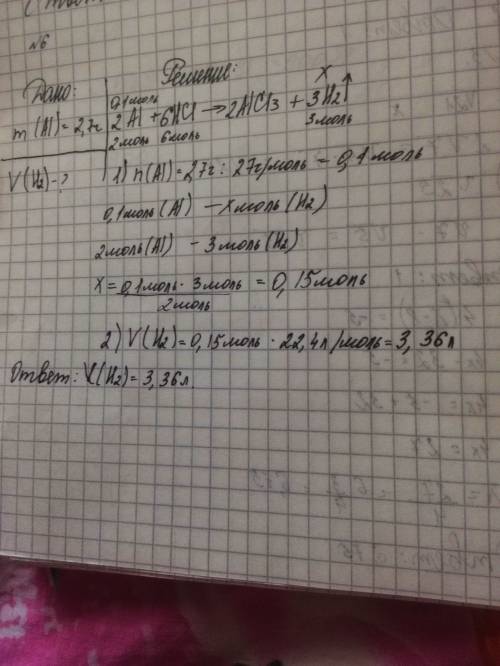 №6
Решение:
Дано:
0,1моль x
m(Al)=2,7г 2Al+6HCl→2AlCl3+3H2↑
2моль 6моль 3моль
V(H2)-? 1) n(Al)=2,7г:27г/моль=0,1моль
0,1моль(Al) - xмоль(H2)
2моль(Al) - 3моль(H2)
x=0,1моль·3моль=0,15моль
2моль
2) V(H2)=0,15моль·22,4л/моль=3,36л
Ответ: V(H2)=3,36л